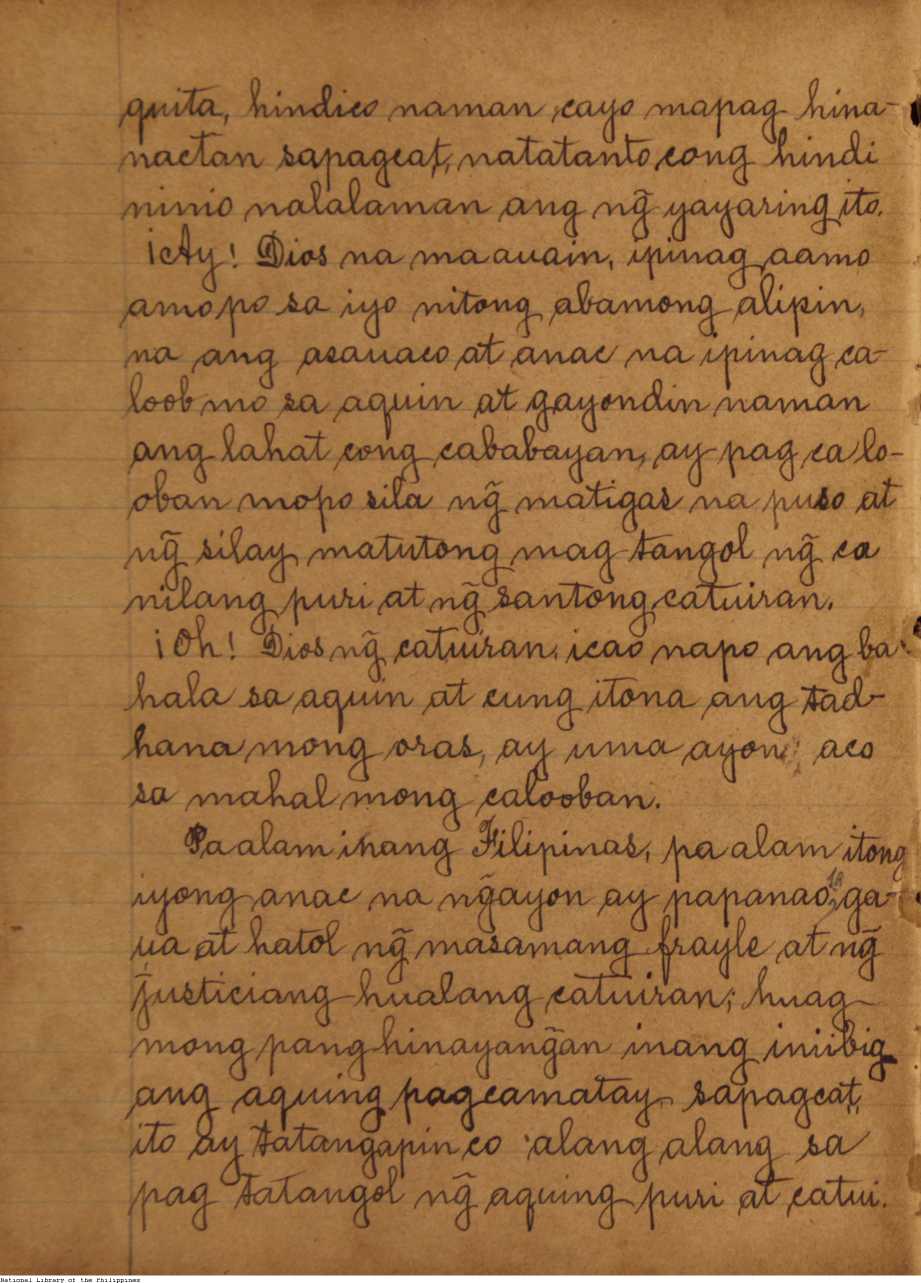 quita, hindico naman cayo mapag hina-
nactan sapagcat, natatanto cong hindi
ninio nalalaman ang ng̃ yayaring ito.
¡Ay! Dios na maauain, ipinag aamo
amo po sa iyo nitong abamong alipin,
na ang asauaco at anac na ipinag ca-
loob mo sa aquin at gayondin naman
ang lahat cong cababayan, ay pag ca lo-
oban mopo sila ng̃ matigas na puso at
ng̃ silay matutong mag tangol ng̃ ca
nilang puri at ng̃ santong catuiran.
¡Oh! Dios ng̃ catuiran, icao napo ang ba
hala sa aquin at cung itona ang tad-
hana mong oras, ay uma ayon aco
sa mahal mong calooban.
Paalam inang Filipinas, pa alam itong
iyong anac na ng̃ayon ay papanao, ga-
ua at hatol ng̃ masamang frayle at ng̃
justiciang hualang catuiran; huag
mong pang hinayang̃an inang iniibig
ang aquing pagcamatay sapagcat,
ito ay tatangapin co alang alang sa
pag tatangol ng̃ aquing puri at catui.
National Library of the Philippines